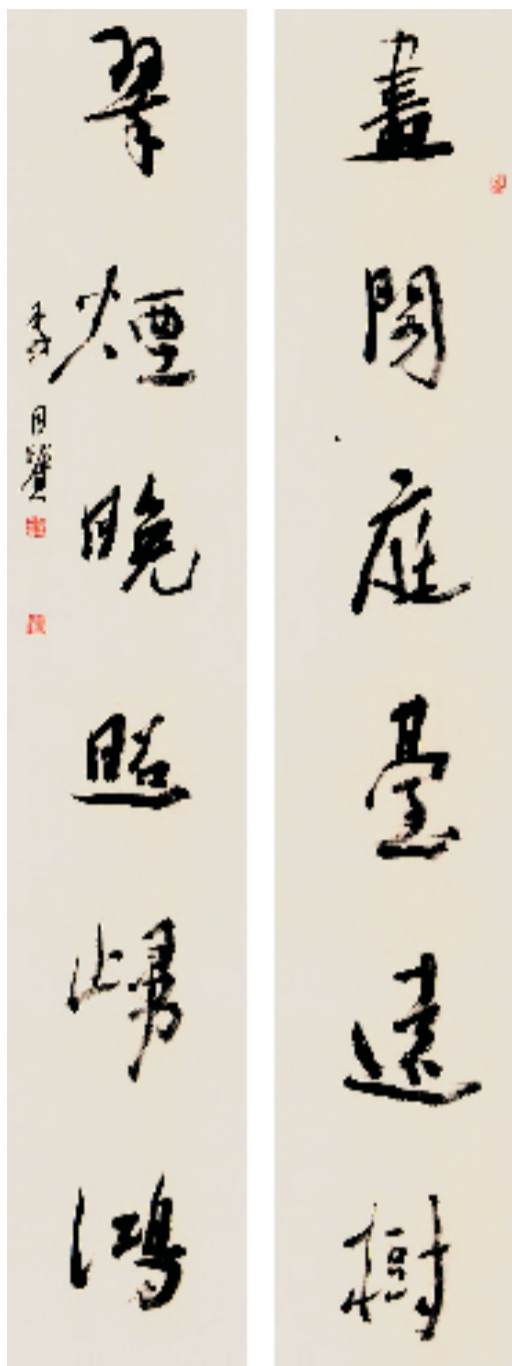 畫閣庭臺遠樹
翠煙晚照歸鴻